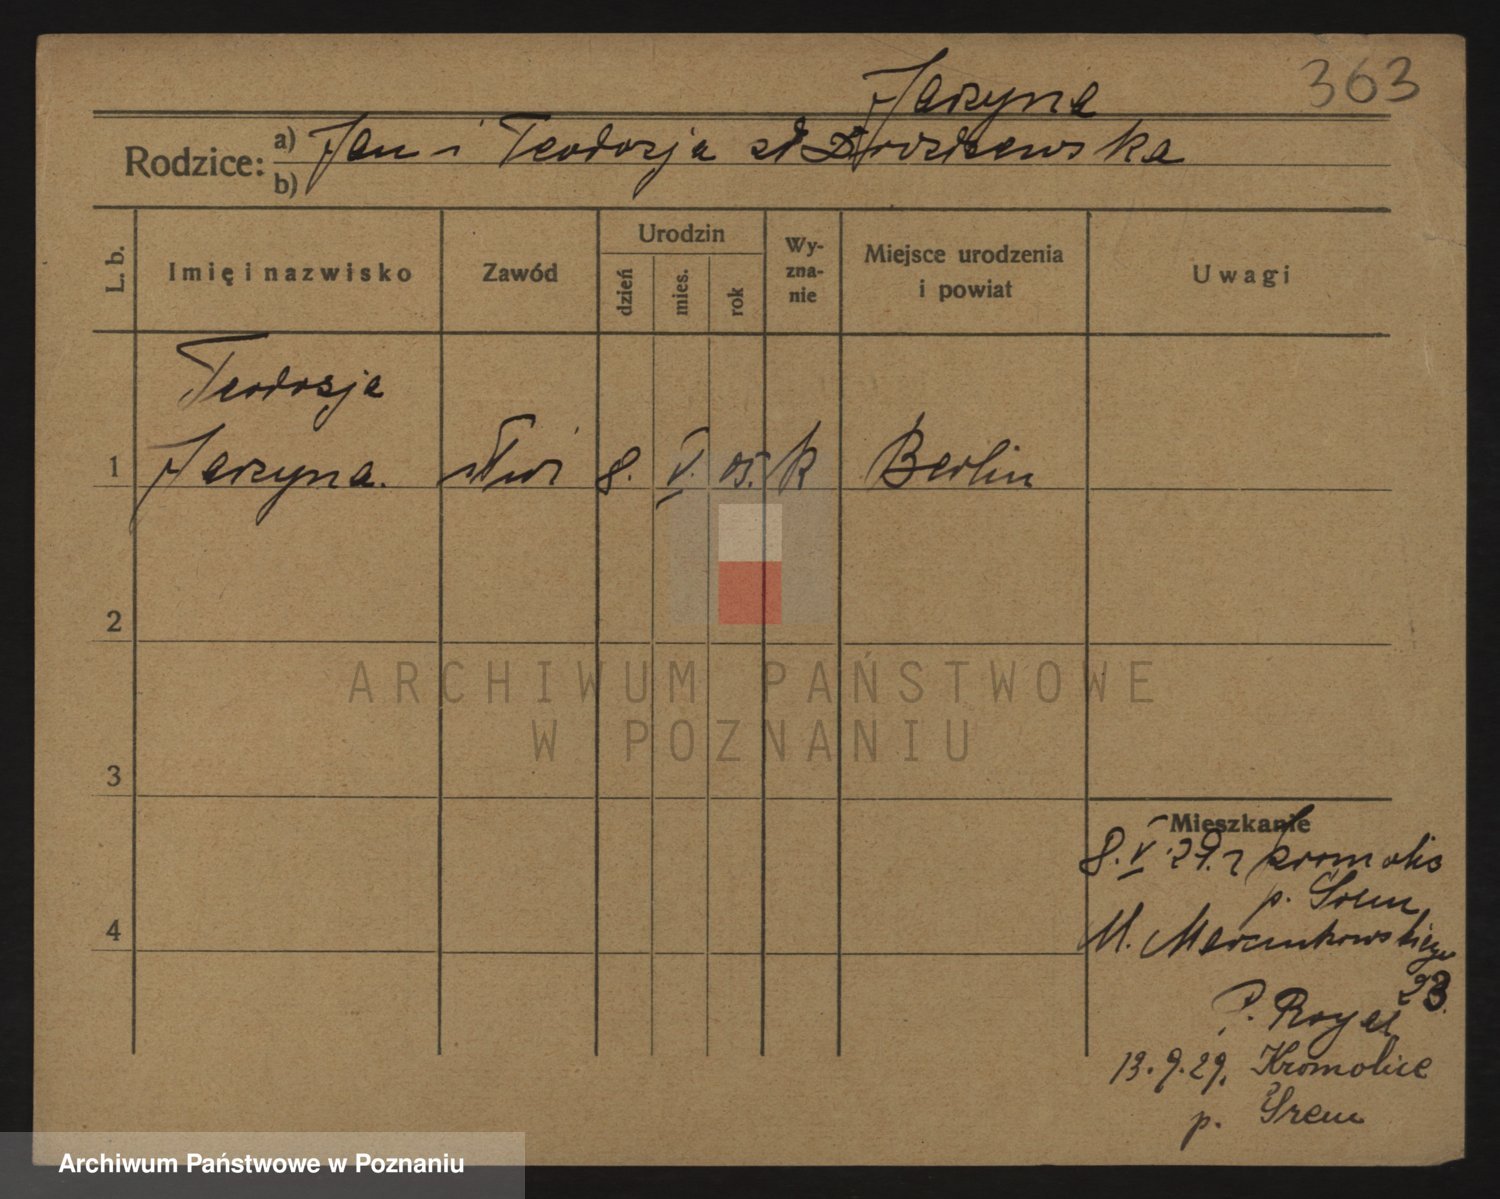 363
Jarzyna
Rodzice: a) Jan i Teodozja
b)
L. b.
Imię i nazwisko
Zawód
Urodzin
dzień
mies.
rok
Wy-
zna-
nie
Miejsce urodzenia
i powiat
Uwagi
Teodozja
1 Jarzyna. 8. V. 05. k Berlin
2
3
4
ARCHIWUM PAŃSTWOWE
W POZNANIU
Mieszkanie
8. V. 29. z
p. Śrem
M. Marcinkowskiego
23.
P.
13.9.29. Kromolice
p. Śrem
Archiwum Państwowe w Poznaniu